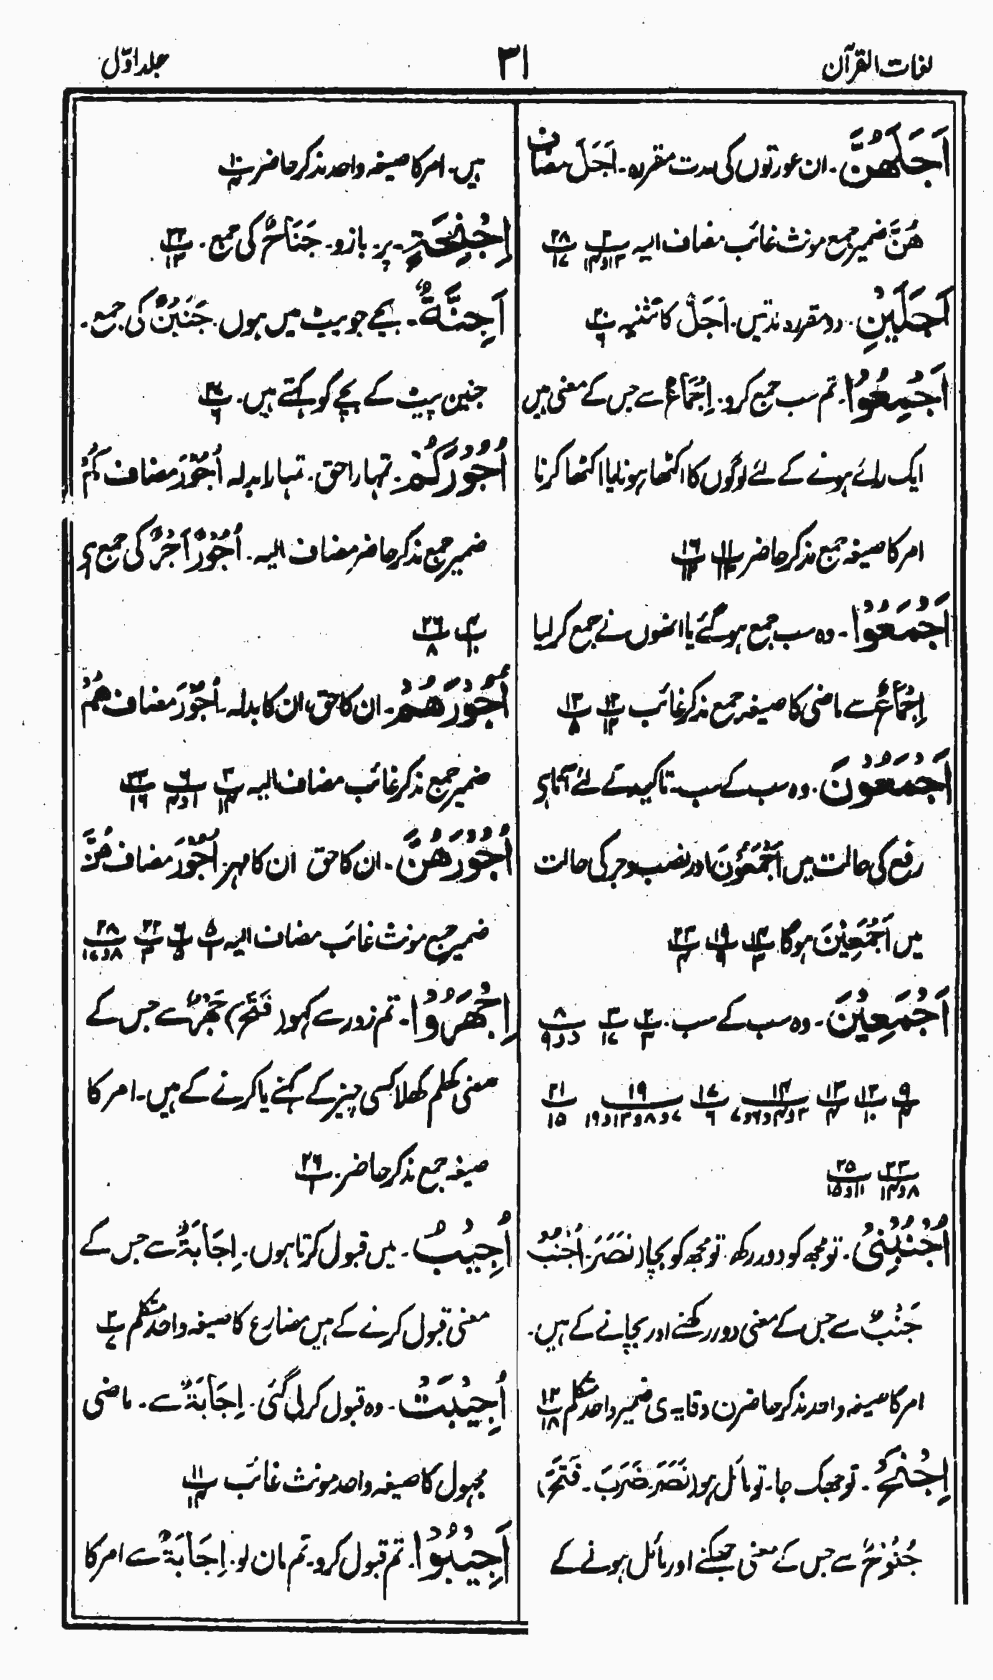 لغات القرآن
۳۱
جلد اوّل
اَجَلَهُنَّ۔ ان عورتوں کی مدت مقررہ۔ اَجَلَ مضاف
هُنَّ ضمیر جمع مونث غائب مضاف الیہ ۲ ۱۳و۱۴ ۲۸ ۱۷
اَجَلَیْنِ۔ دو مقررہ مدتیں۔ اَجَلٌ کا تثنیہ ۲۰ ۶
اَجْمِعُوْا۔ تم سب جمع کرو۔ اِجْمَاعٌ سے جس کے معنی ہیں
ایک رائے ہونے کے لئے لوگوں کا اکٹھا ہونا یا اکٹھا کرنا
امر کا صیغہ جمع مذکر حاضر ۱۱ ۱۳ ۱۶ ۱۲
اَجْمَعُوْا۔ وہ سب جمع ہو گئے یا انھوں نے جمع کر لیا
اِجْمَاعٌ سے ماضی کا صیغہ جمع مذکر غائب ۱۲ ۱۲ ۱۳ ۵
اَجْمَعُوْنَ۔ وہ سب کے سب۔ تاکید کے لئے آتا ہے
رفع کی حالت میں اَجْمَعُوْنَ اور نصب و جر کی حالت
میں اَجْمَعِیْنَ ہوگا ۱۴ ۳ ۱۹ ۹ ۲۳ ۴
اَجْمَعِیْنَ۔ وہ سب کے سب۔ ۲ ۳ ۳ ۱۷ ۸ و و۹
۹ ۴ ۱۲ ۱۰ ۱۳ ۴ ۱۴ ۳و۴و۶و۷ ۱۷ ۶ ۱۹ ۷و۸و۱۳و۱۹ ۲۱ ۱۵
۲۳ ۸و۱۴ ۲۵ ۱۱و۱۵
اُجْنُبْنِیْ۔ تو مجھ کو دور رکھ۔ تو مجھ کو بچا (نَصَرَ) اُجْنُبْ
جَنْبٌ سے جس کے معنی دور رکھنے اور بچانے کے ہیں۔
امر کا صیغہ واحد مذکر حاضر ن وقایہ ی ضمیر واحد متکلم ۱۳ ۱۸
اِجْنَحْ۔ تو جھک جا۔ تو مائل ہو (نَصَرَ۔ ضَرَبَ۔ فَتَحَ)
جُنُوْحٌ سے جس کے معنی جھکنے اور مائل ہونے کے
ہیں۔ امر کا صیغہ واحد مذکر حاضر ۱۰ ۴
اَجْنِحَةٍ۔ پر۔ بازو۔ جَنَاحٌ کی جمع۔ ۲۲ ۱۳
اَجِنَّةٌ۔ بچے جو پیٹ میں ہوں۔ جَنِیْنٌ کی جمع۔
جنین پیٹ کے بچے کو کہتے ہیں۔ ۲۷ ۶
اُجُوْرَكُمْ۔ تمہارا حق۔ تمہارا بدلہ اُجُوْرَ مضاف كُمْ
ضمیر جمع مذکر حاضر مضاف الیہ۔ اُجُوْرٌ اَجْرٌ کی جمع ہے
۴ ۱۰ ۲۶ ۸
اُجُوْرَهُمْ۔ ان کا حق، ان کا بدلہ۔ اُجُوْرَ مضاف هُمْ
ضمیر جمع مذکر غائب مضاف الیہ ۳ ۱۴ ۶ ۱و۴ ۲۲ ۱۹
اُجُوْرَهُنَّ۔ ان کا حق ان کا مہر۔ اُجُوْرَ مضاف هُنَّ
ضمیر جمع مونث غائب مضاف الیہ ۵ ۱ ۶ ۵ ۲۲ ۳ ۲۸ ۸و۱۷
اِجْهَرُوْا۔ تم زور سے کہو (فَتَحَ) جَهْرٌ سے جس کے
معنی کھلم کھلا کسی چیز کے کہنے یا کرنے کے ہیں۔ امر کا
صیغہ جمع مذکر حاضر۔ ۲۹ ۱
اُجِیْبُ۔ میں قبول کرتا ہوں۔ اِجَابَةٌ سے جس کے
معنی قبول کرنے کے ہیں مضارع کا صیغہ واحد متکلم ۲ ۷
اُجِیْبَتْ۔ وہ قبول کر لی گئی۔ اِجَابَةٌ سے۔ ماضی
مجہول کا صیغہ واحد مونث غائب ۱۱ ۱۴
اَجِیْبُوْا۔ تم قبول کرو۔ تم مان لو۔ اِجَابَةٌ سے امر کا